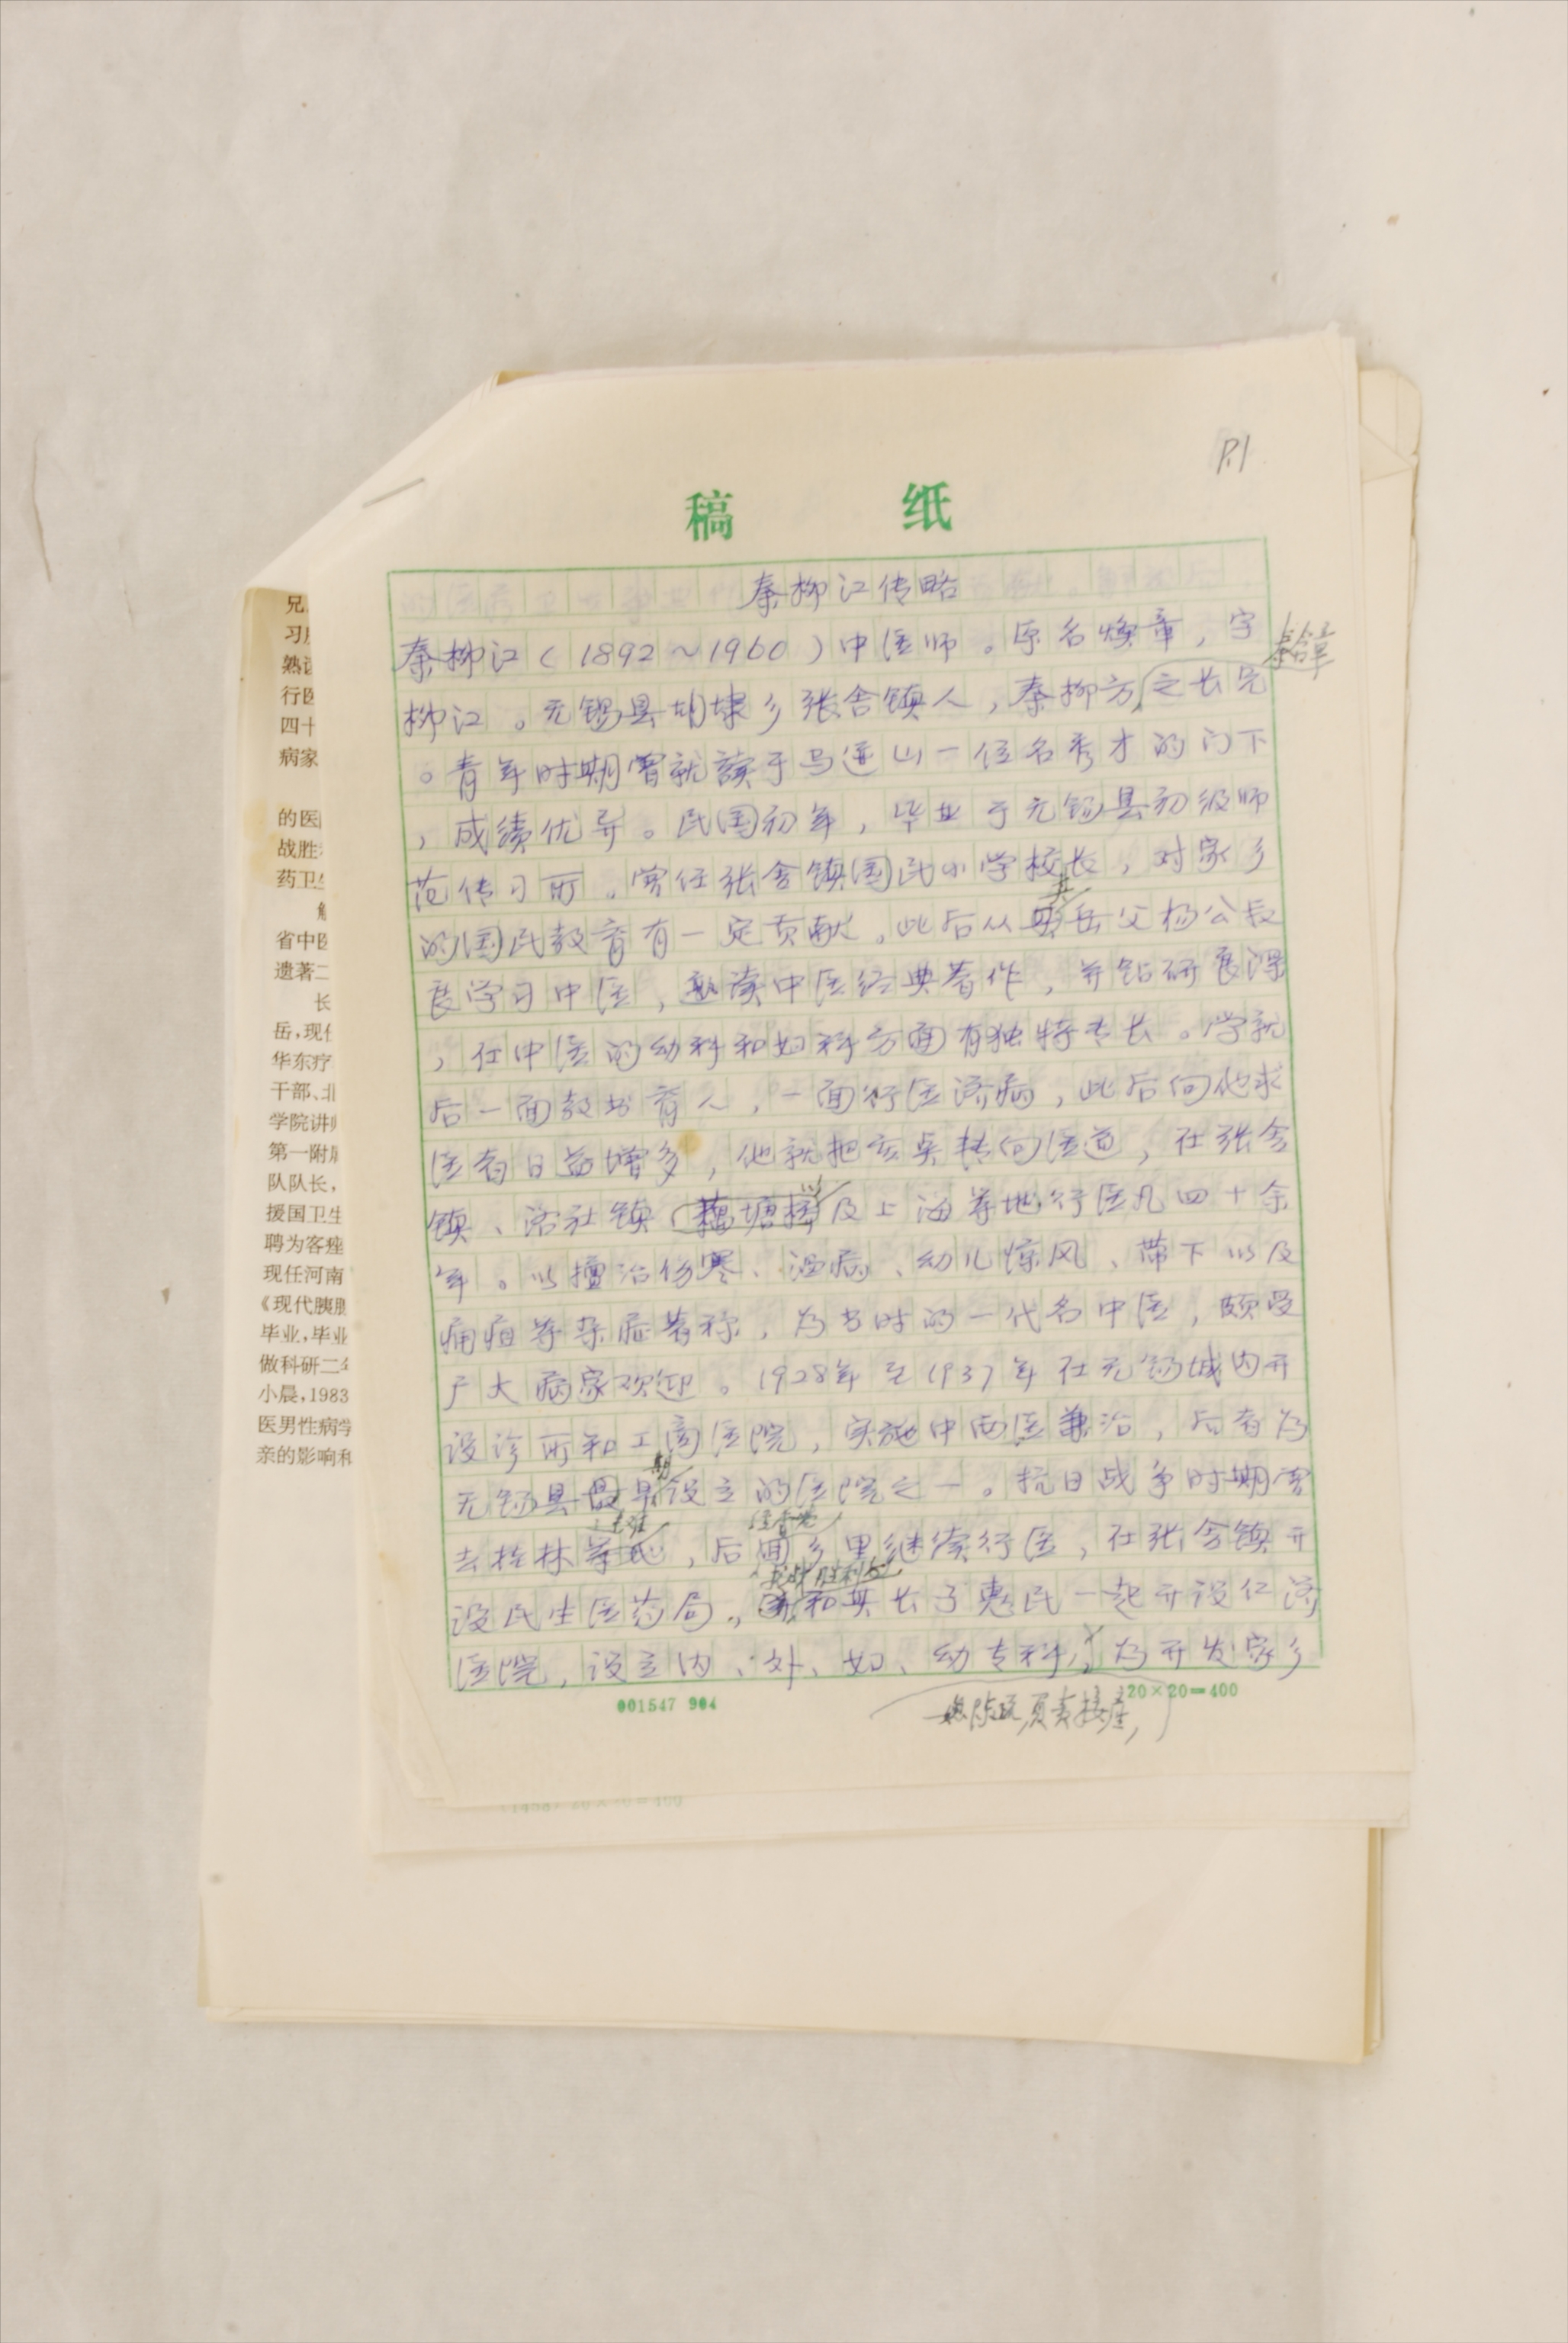 P.1
稿 纸
秦柳江传略
秦柳江(1892~1960)中医师。原名焕章,字
秦含章
柳江。无锡县胡埭乡张舍镇人,秦柳方之长兄
。青年时期曾就读于马迹山一位名秀才的门下
,成绩优异。民国初年,毕业于无锡县初级师
范传习所。曾任张舍镇国民小学校长,对家乡
的国民教育有一定贡献。此后从其岳父杨公长
其
良学习中医,熟读中医经典著作,并钻研良深
,在中医的幼科和妇科方面有独特专长。学就
后一面教书育人,一面行医济病,此后向他求
医者日益增多,他就把重点转向医道,在张舍
镇、洛社镇、藕塘桥以及上海等地行医凡四十余
年。以擅治伤寒、温病、幼儿惊风、带下以及
痈疽等杂症著称,为当时的一代名中医,颇受
广大病家欢迎。1928年至1937年在无锡城内开
设诊所和工商医院,实施中西医兼治,后者为
无锡县最早设立的医院之一。抗日战争时期曾
期
去桂林等地,后回乡里继续行医,在张舍镇开
避难
经香港
设民生医药局,和其长子惠民一起开设仁济
抗战胜利后
医院,设立内、外、妇、幼专科,为开发家乡
负责接产,
001547 904
20×20=400
兄
习
熟
行医
四十
病家
的医
战胜
药卫生
省中医
遗著二
长
岳,现任
华东疗
干部、北
学院讲师
第一附属
队队长,
援国卫生
聘为客座
现任河南
《现代胰腺
毕业,毕业
做科研二年
小晨,1983
医男性病学
亲的影响和